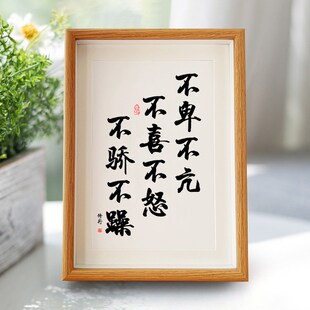 不卑不亢
不喜不怒
不骄不躁